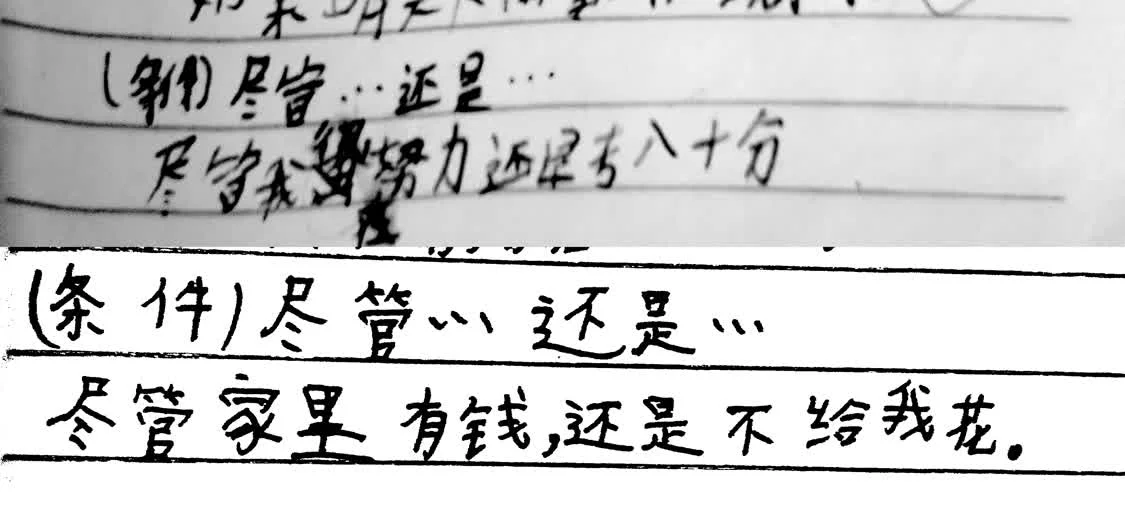 (条件)尽管…还是…
尽管我努力还是考八十分
(条件)尽管…还是…
尽管家里有钱,还是不给我花。